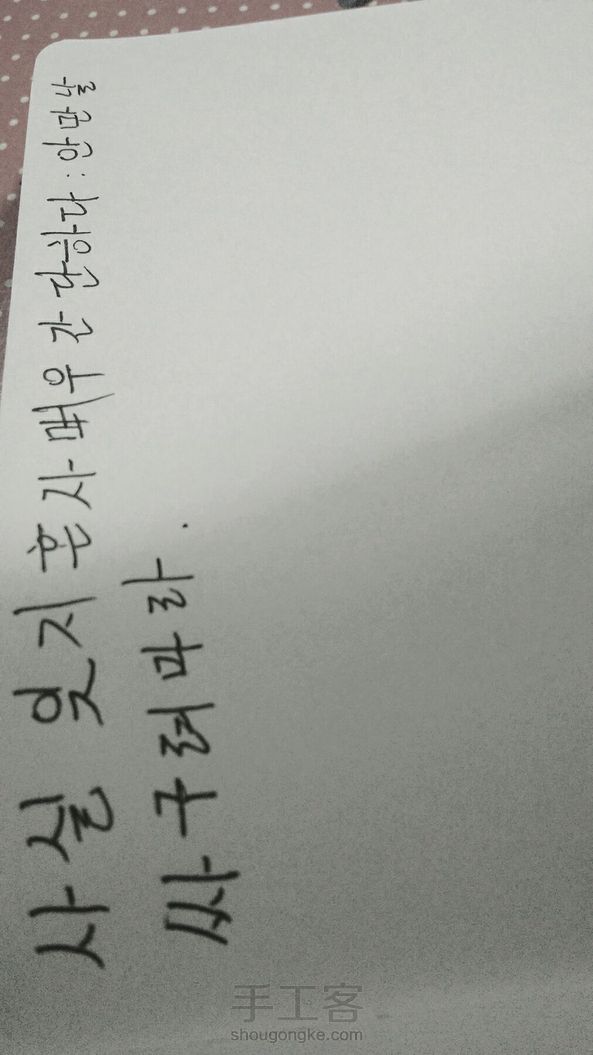 사실 잊지 혼자 매우 간단하다 : 안 만날
싸구려마라.
手工客
shougongke.com